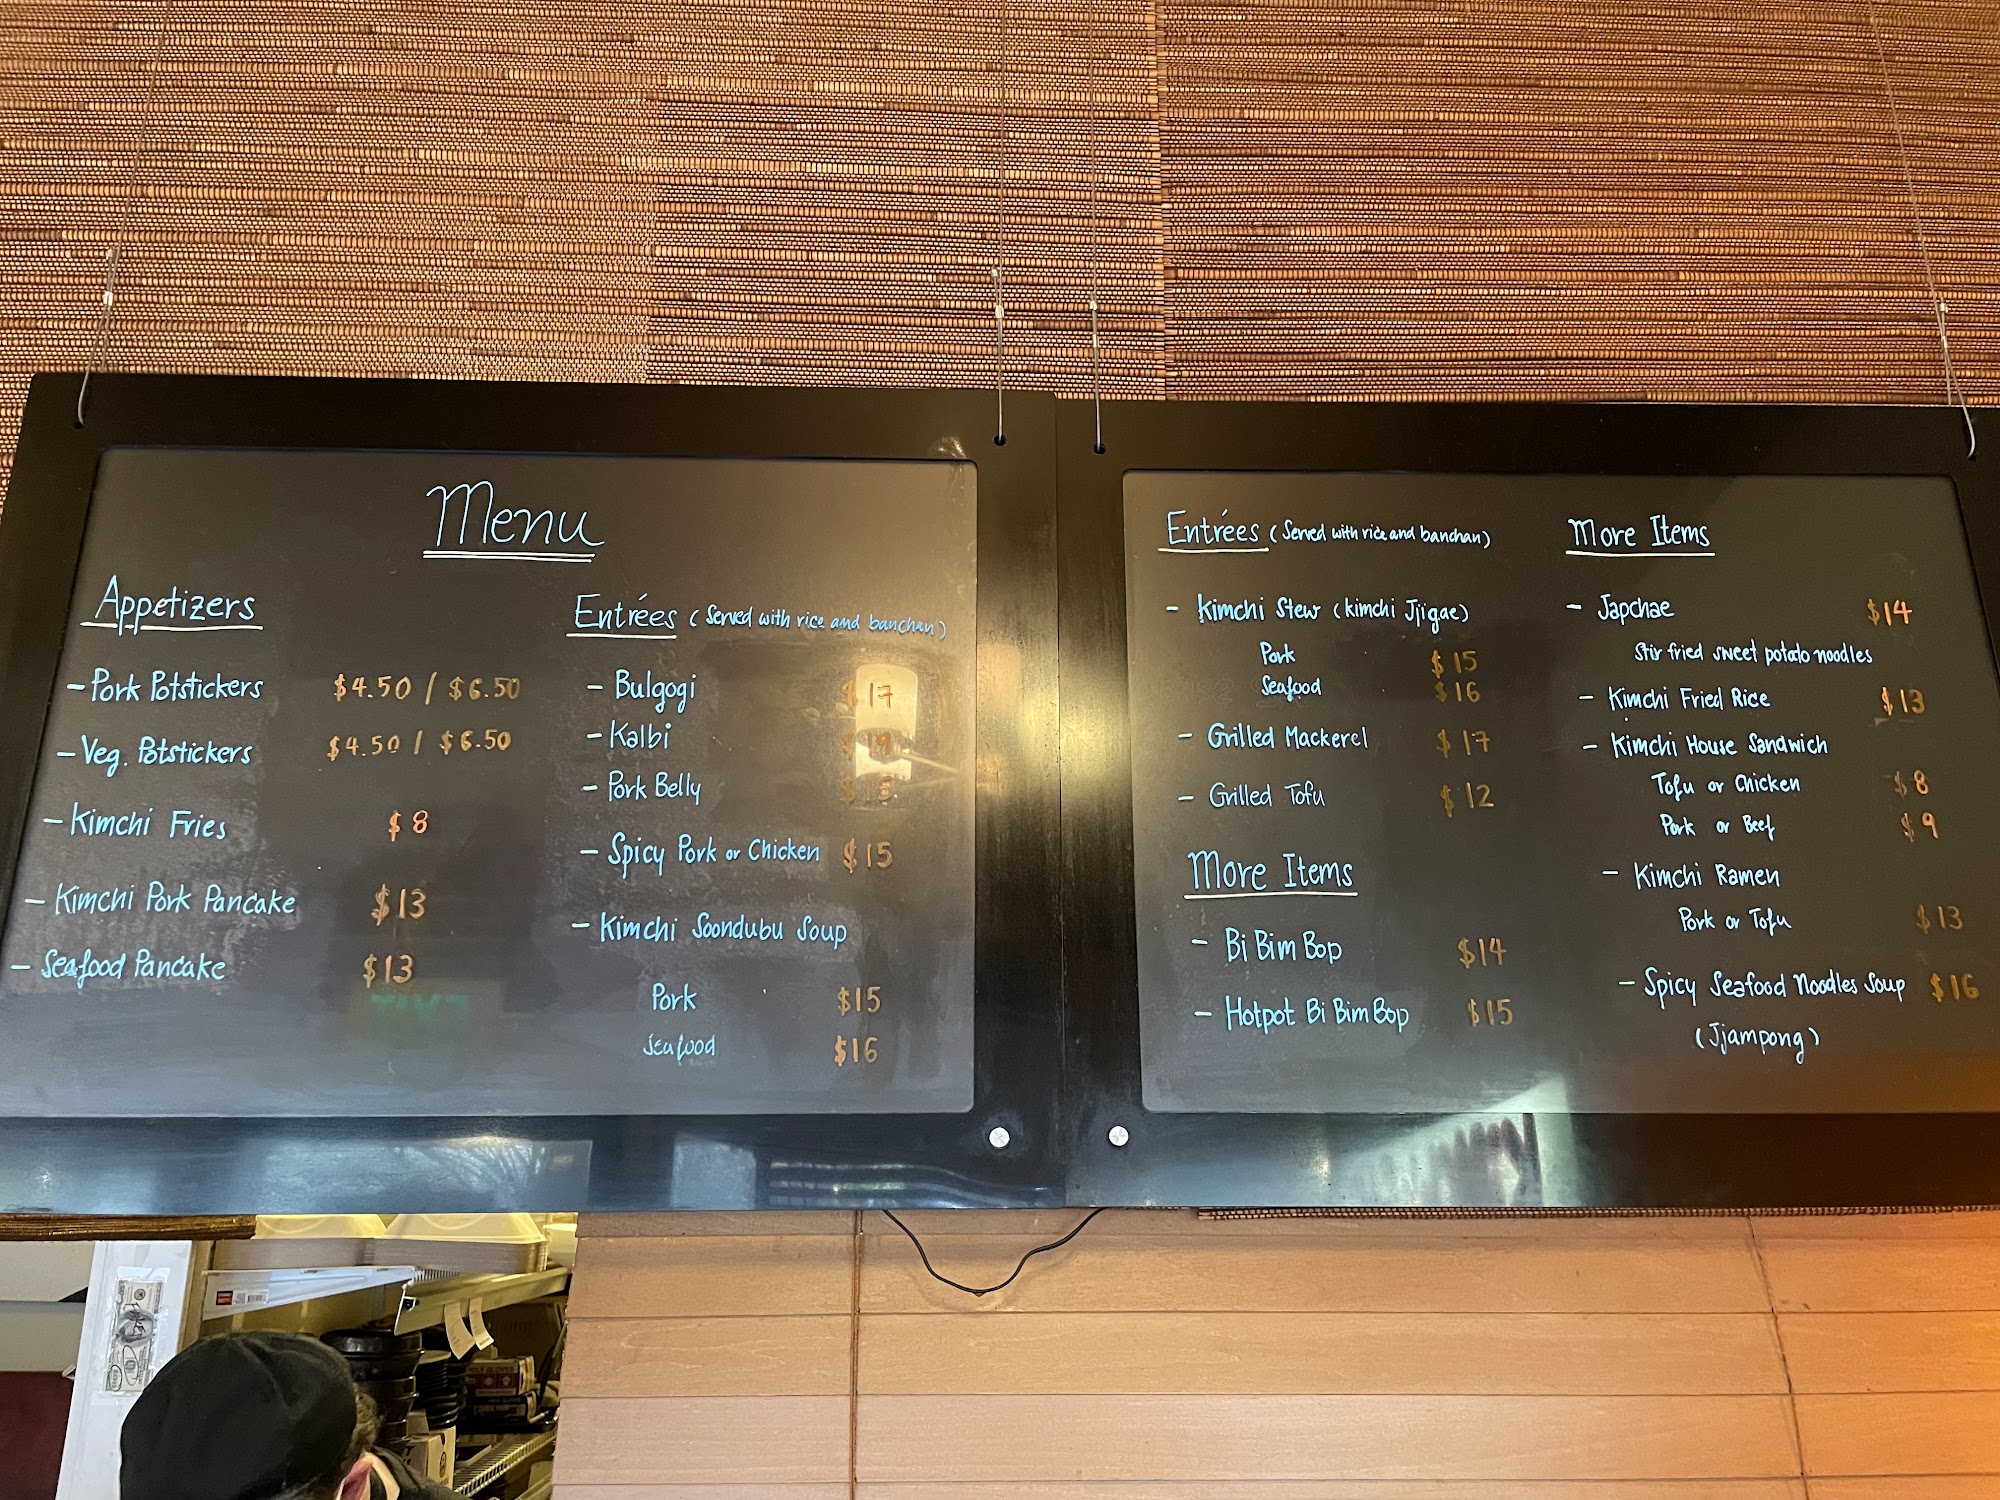 Menu
Appetizers
- Pork Potstickers $4.50 / $6.50
- Veg. Potstickers $4.50 / $6.50
- Kimchi Fries $8
- Kimchi Pork Pancake $13
- Seafood Pancake $13
Entrées (Served with rice and banchan)
- Bulgogi $17
- Kalbi
- Pork Belly
- Spicy Pork or Chicken $15
- Kimchi Soondubu Soup
Pork $15
Seafood $16
Entrées (Served with rice and banchan)
- Kimchi Stew (Kimchi Jjigae)
Pork $15
Seafood $16
- Grilled Mackerel $17
- Grilled Tofu $12
More Items
- Bi Bim Bop $14
- Hotpot Bi Bim Bop $15
More Items
- Japchae $14
Stir fried sweet potato noodles
- Kimchi Fried Rice $13
- Kimchi House Sandwich
Tofu or Chicken $8
Pork or Beef $9
- Kimchi Ramen
Pork or Tofu $13
- Spicy Seafood Noodles Soup $16
(Jjampong)